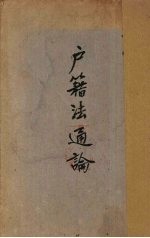 户籍法通論